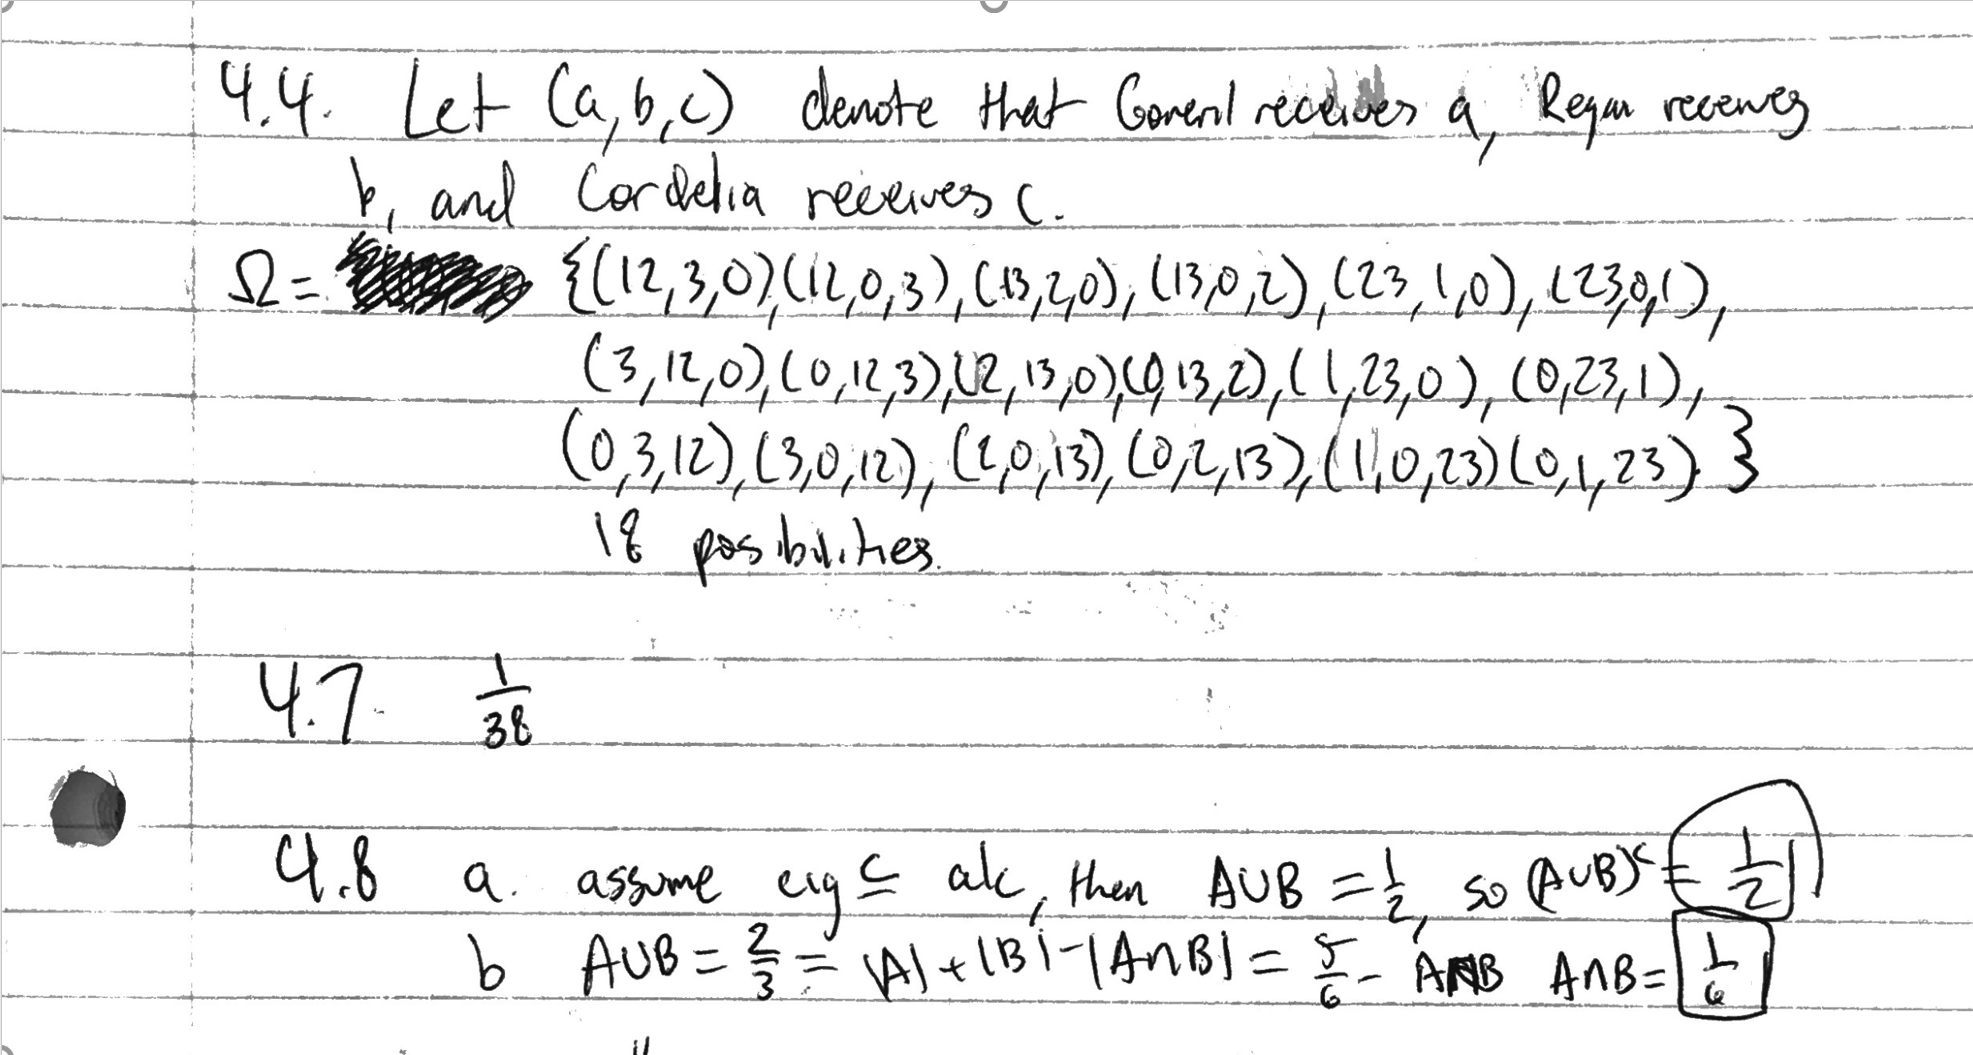 4.4. Let (a,b,c) denote that Goneril receives a, Regan receives
b, and Cordelia receives c.
Ω = {(12,3,0),(12,0,3),(13,2,0),(13,0,2),(23,1,0),(23,0,1),
(3,12,0),(0,12,3),(2,13,0),(0,13,2),(1,23,0),(0,23,1),
(0,3,12),(3,0,12),(2,0,13),(0,2,13),(1,0,23)(0,1,23)}
18 posibilities.
4.7. 1/38
4.8 a. assume cig ⊆ alc, then A∪B = 1/2, so (A∪B)^c = 1/2
b A∪B = 2/3 = |A|+|B|-|A∩B| = 5/6 - A∩B A∩B = 1/6